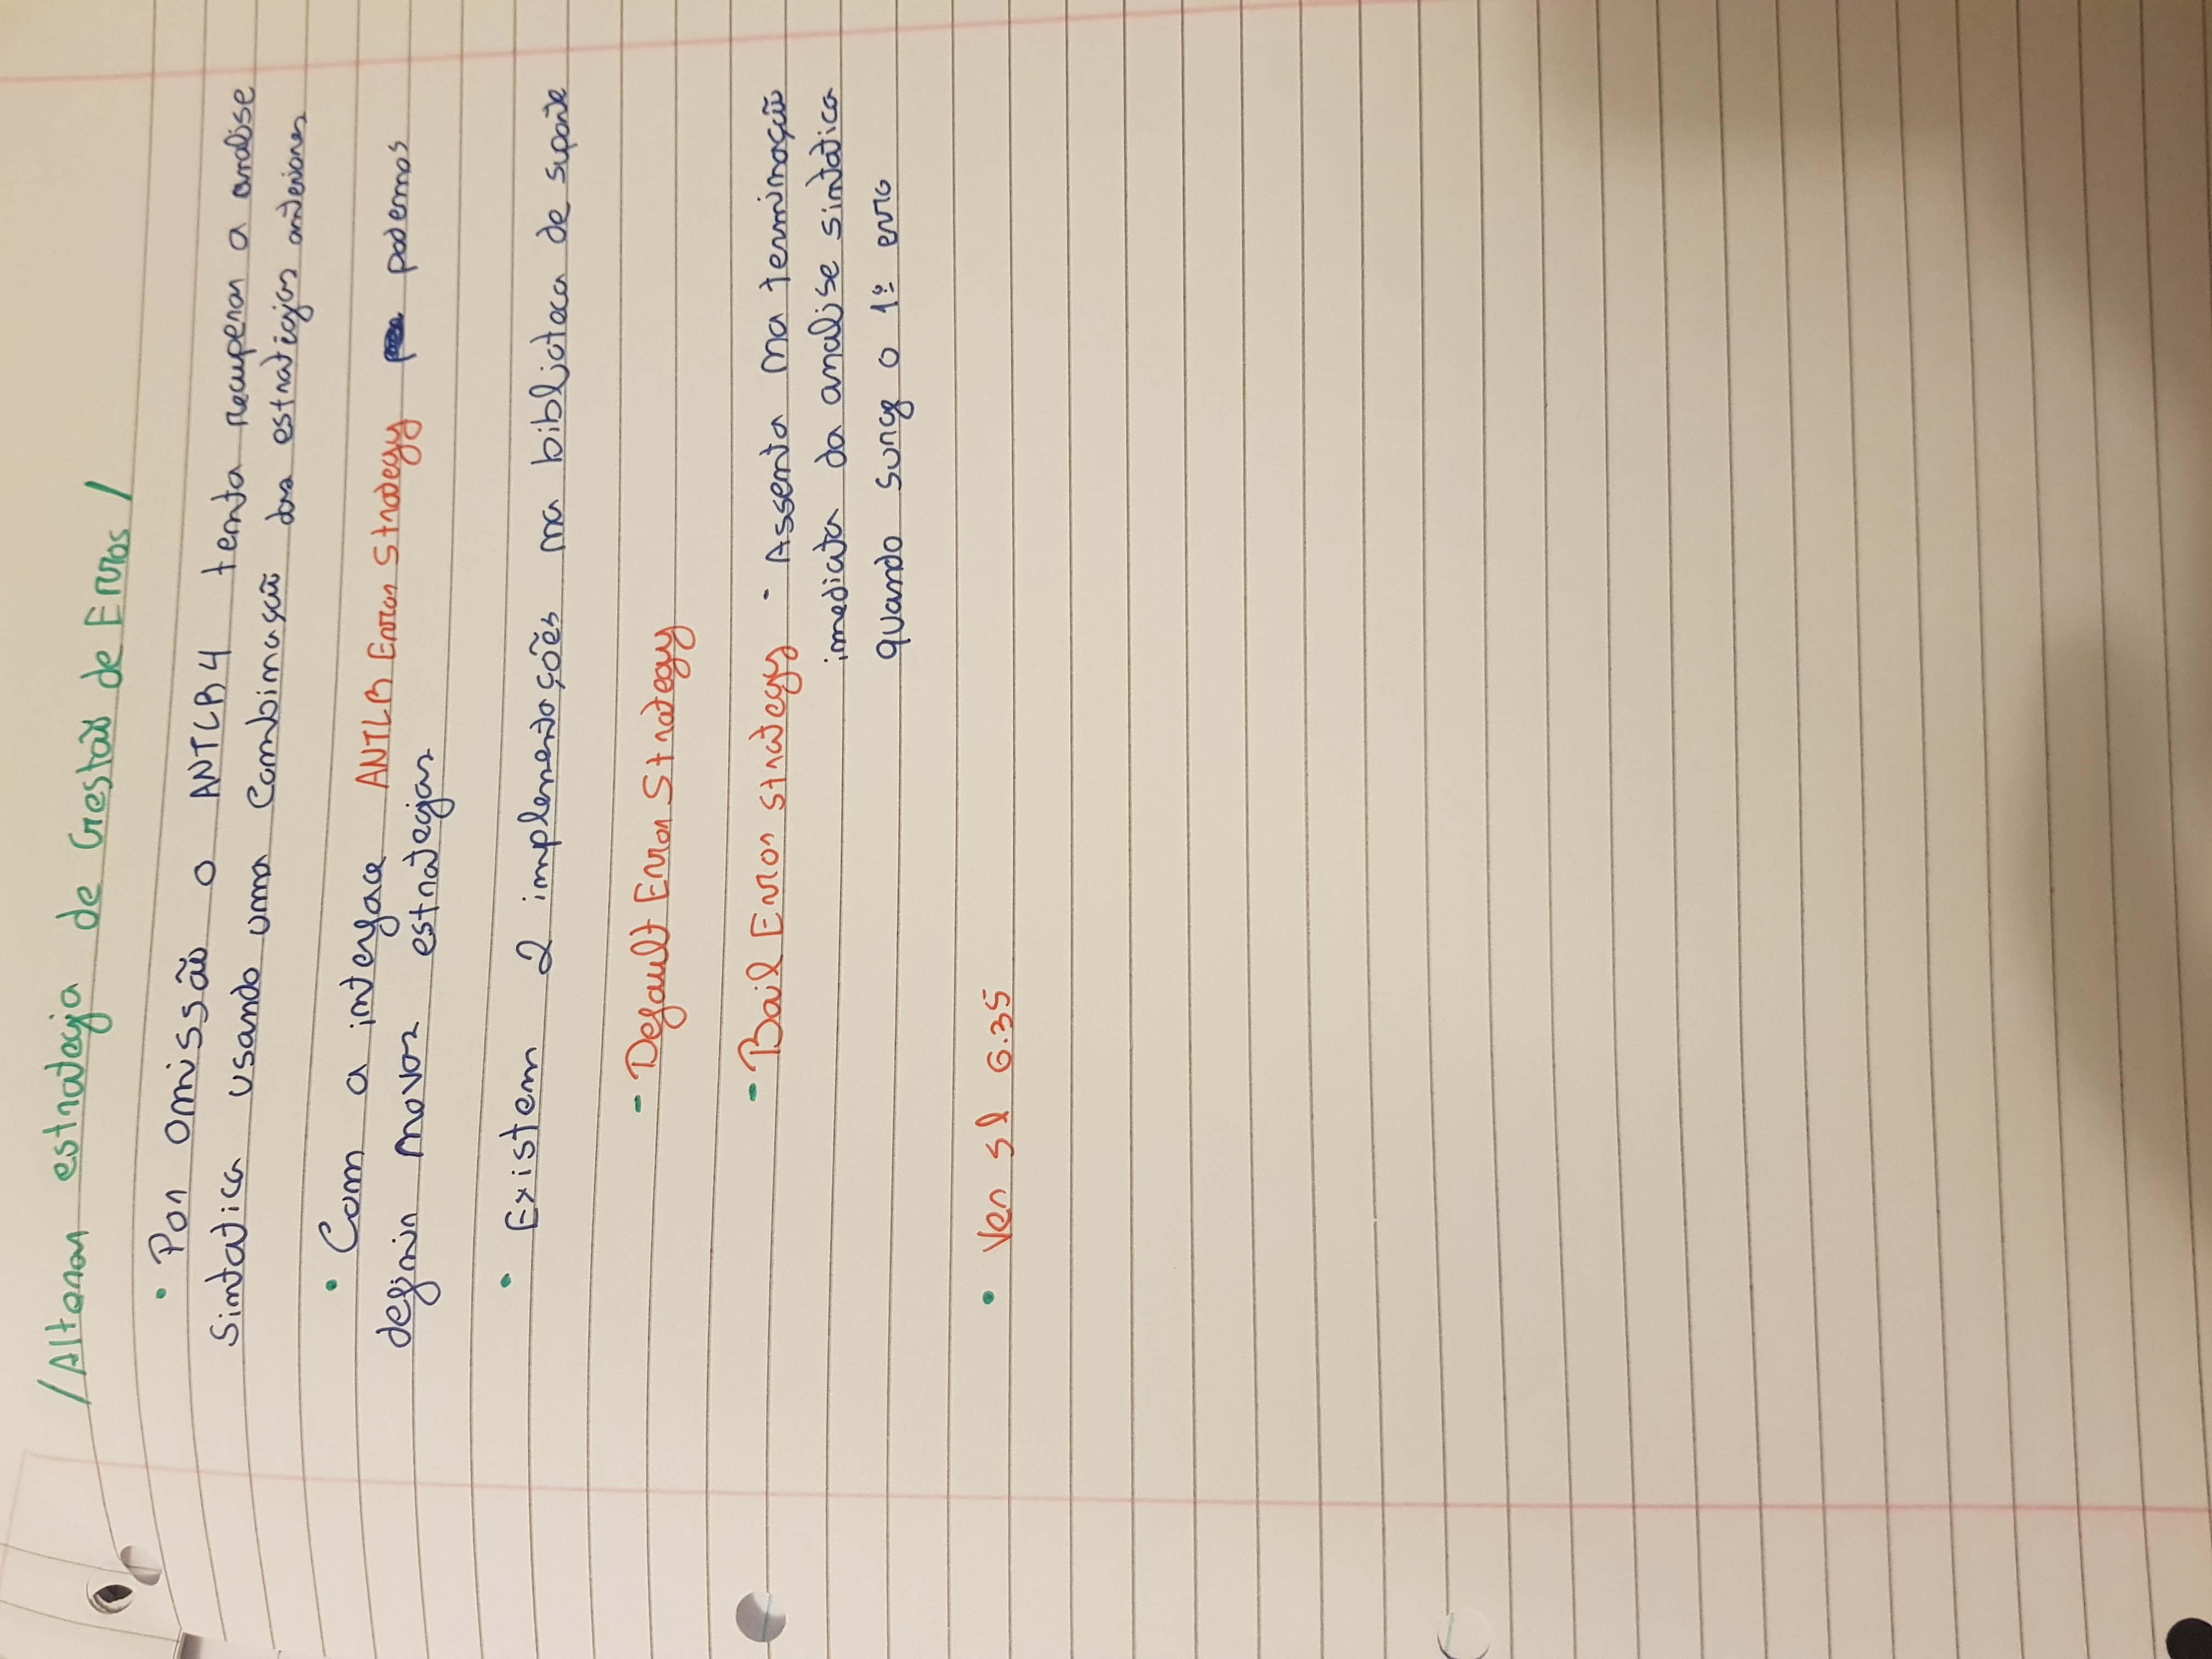 /Alterar estrategia de Gestão de Erros/
• Por omissão o ANTLR4 tenta recuperar a analise
sintatica usando uma combinação das estratégias anteriores
• Com a interface ANTLR Error Strategy podemos
definir novas estrategias
• Existem 2 implementações na biblioteca de suporte
- Default Error Strategy
- Bail Error strategy - Assenta na terminação
imediata da analise sintatica
quando surge o 1º erro
• Ver sl 6.35